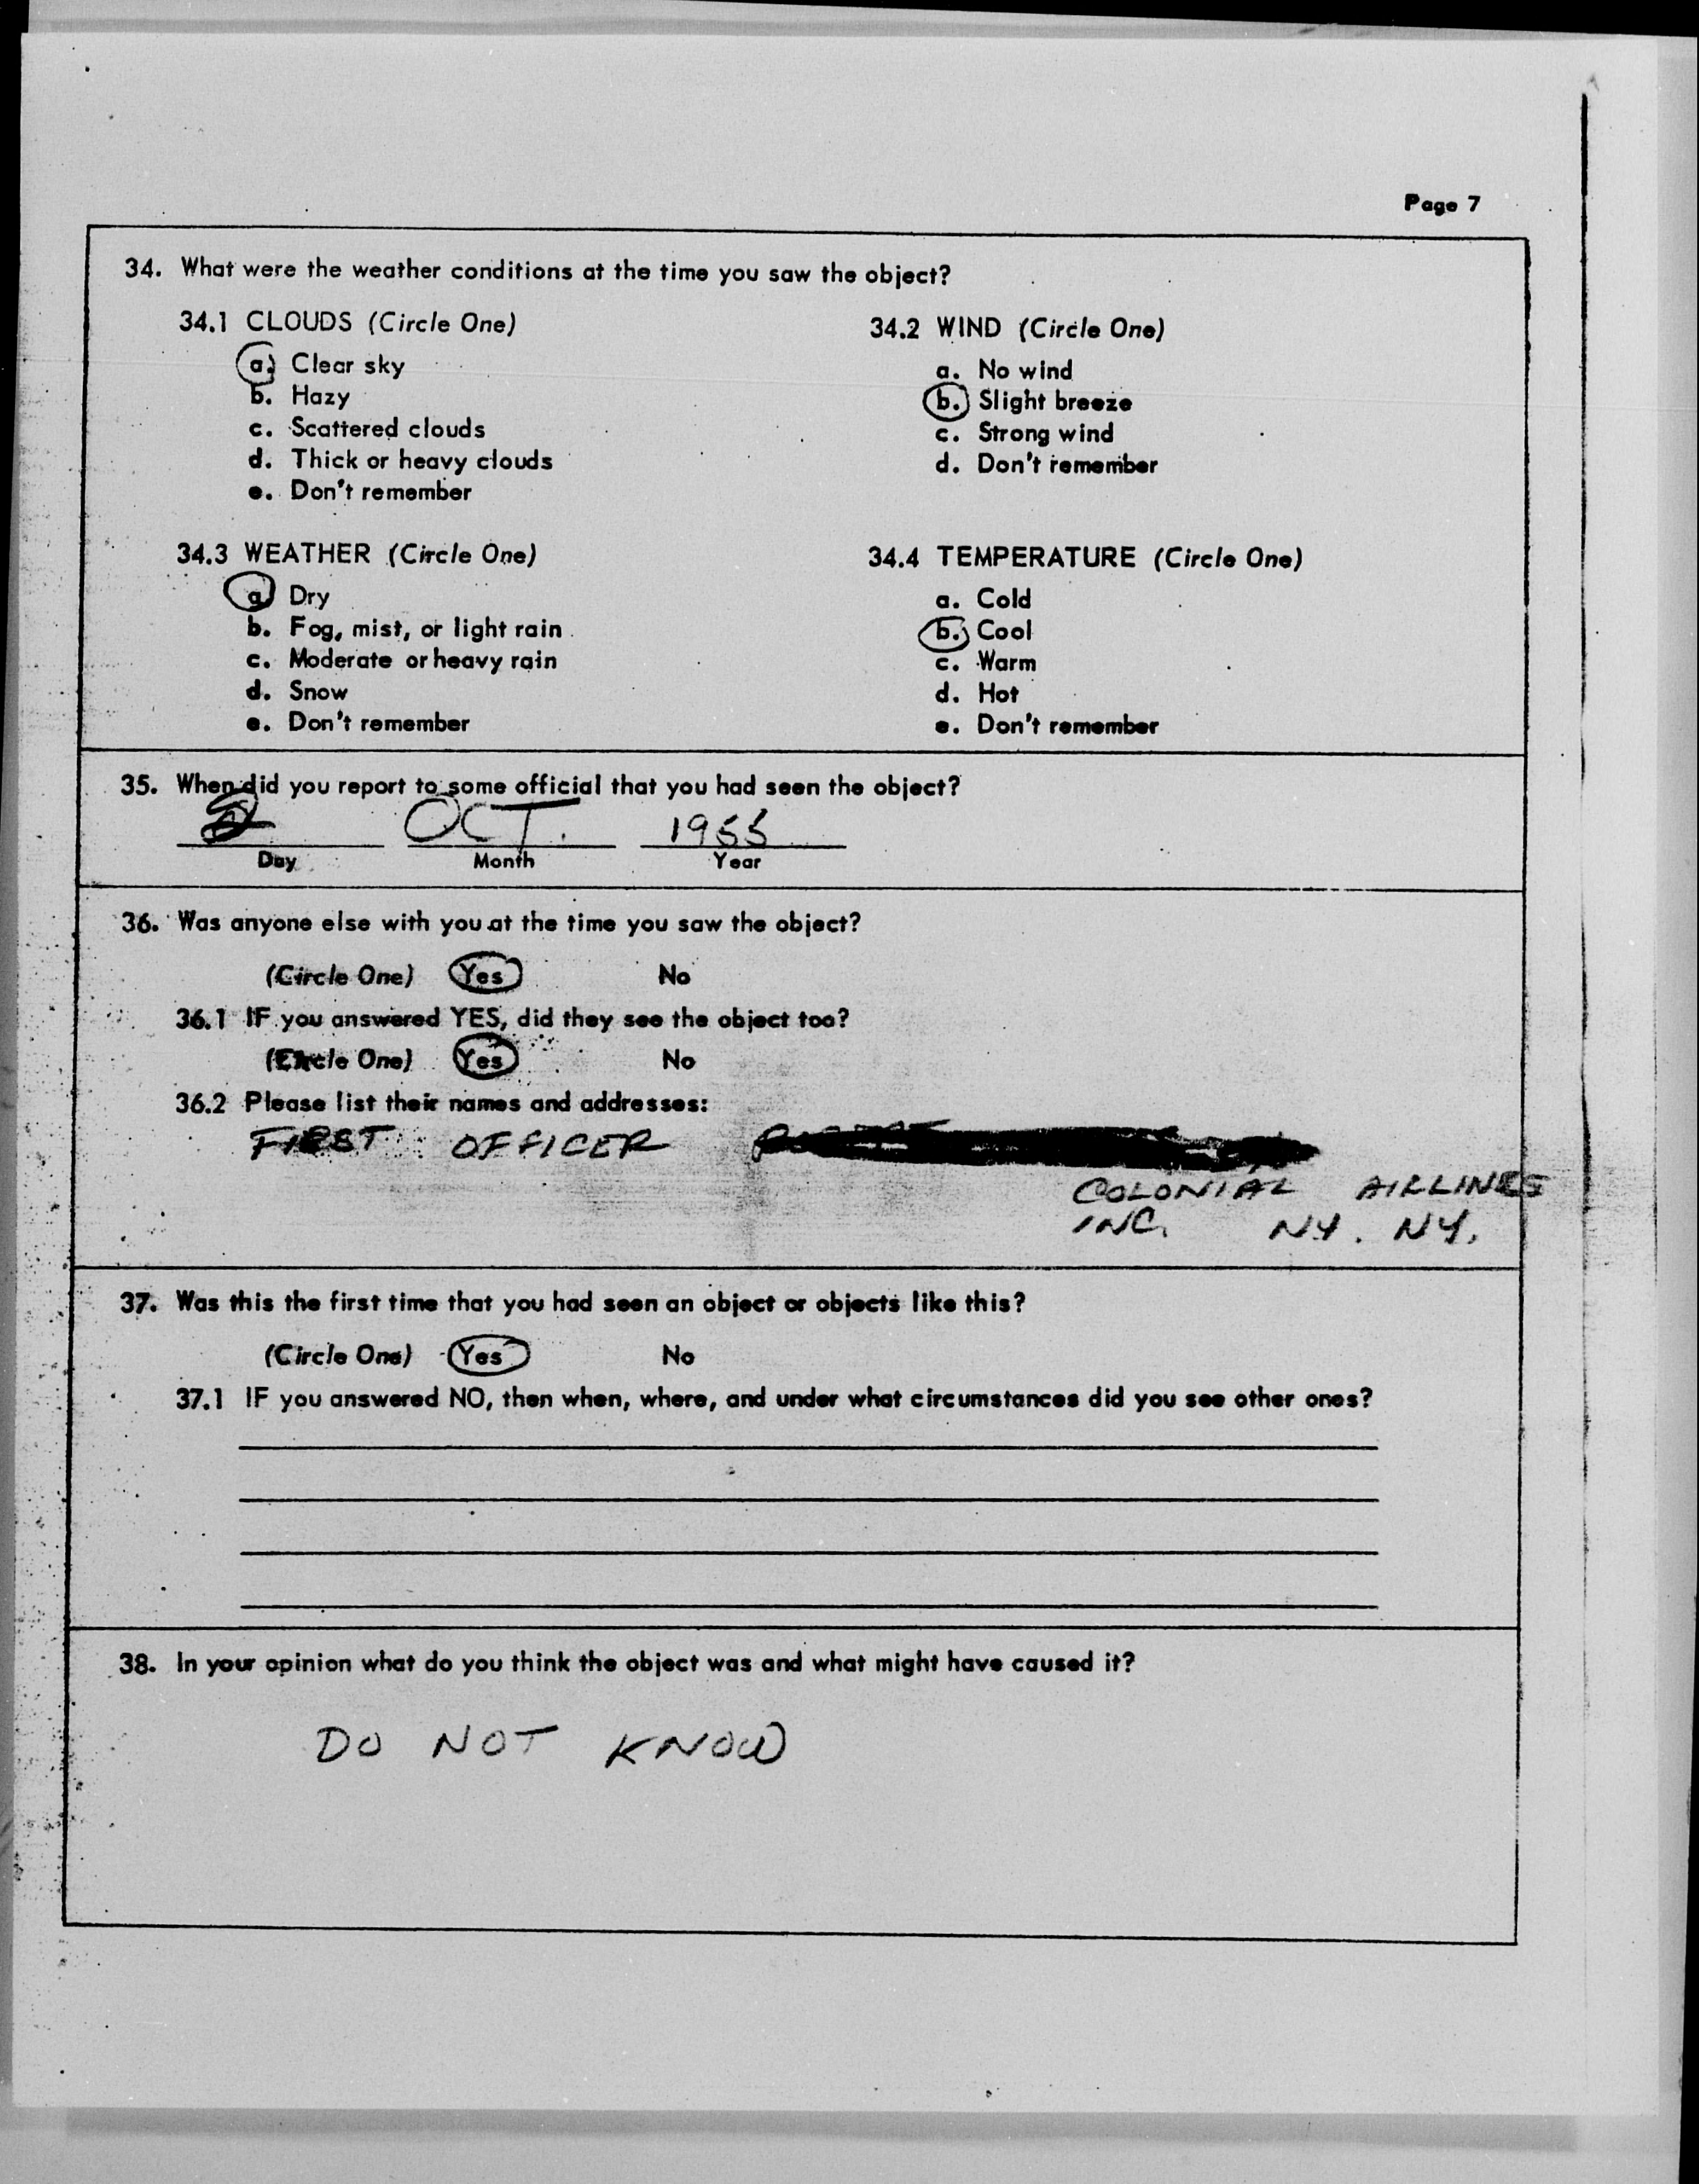 Page 7
34. What were the weather conditions at the time you saw the object?
34.1 CLOUDS (Circle One)
a. Clear sky
b. Hazy
c. Scattered clouds
d. Thick or heavy clouds
e. Don't remember
34.2 WIND (Circle One)
a. No wind
b. Slight breeze
c. Strong wind
d. Don't remember
34.3 WEATHER (Circle One)
a. Dry
b. Fog, mist, or light rain
c. Moderate or heavy rain
d. Snow
e. Don't remember
34.4 TEMPERATURE (Circle One)
a. Cold
b. Cool
c. Warm
d. Hot
e. Don't remember
35. When did you report to some official that you had seen the object?
OCT. 1955
Day Month Year
36. Was anyone else with you at the time you saw the object?
(Circle One) Yes No
36.1 IF you answered YES, did they see the object too?
(Circle One) Yes No
36.2 Please list their names and addresses:
FIRST OFFICER
COLONIAL AIRLINES
INC. NY. NY.
37. Was this the first time that you had seen an object or objects like this?
(Circle One) Yes No
37.1 IF you answered NO, then when, where, and under what circumstances did you see other ones?
38. In your opinion what do you think the object was and what might have caused it?
DO NOT KNOW